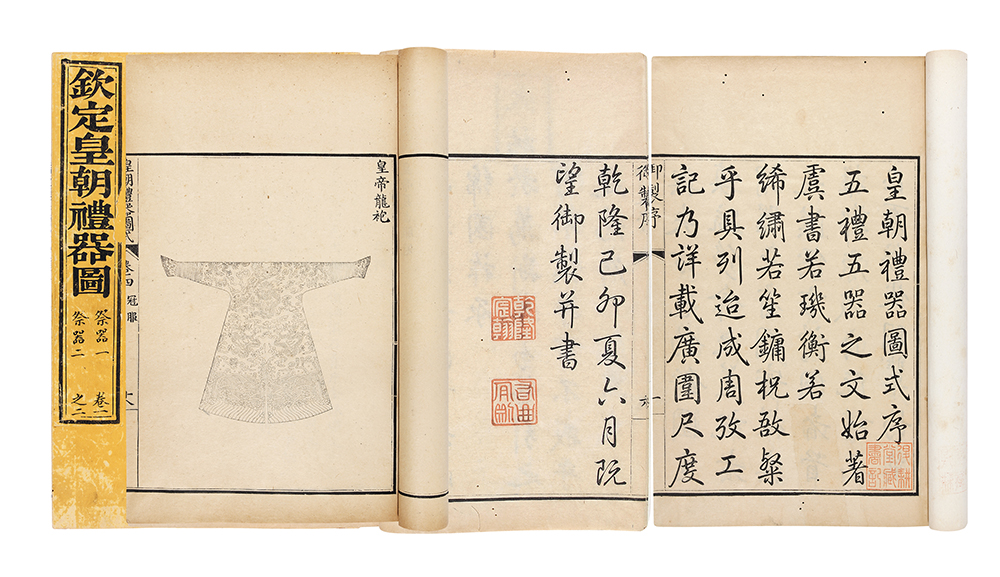 皇朝禮器圖式序
五禮五器之文始著
虞書若璣衡若
絺繡若笙鏞柷敔粲
乎具列迨成周攷工
記乃詳載廣圍尺度
御製序
乾隆己卯夏六月既
望御製并書
乾隆宸翰
皇帝龍袍
皇朝禮器圖式 卷四 冠服
欽定皇朝禮器圖
祭器一 卷一
祭器二 之二